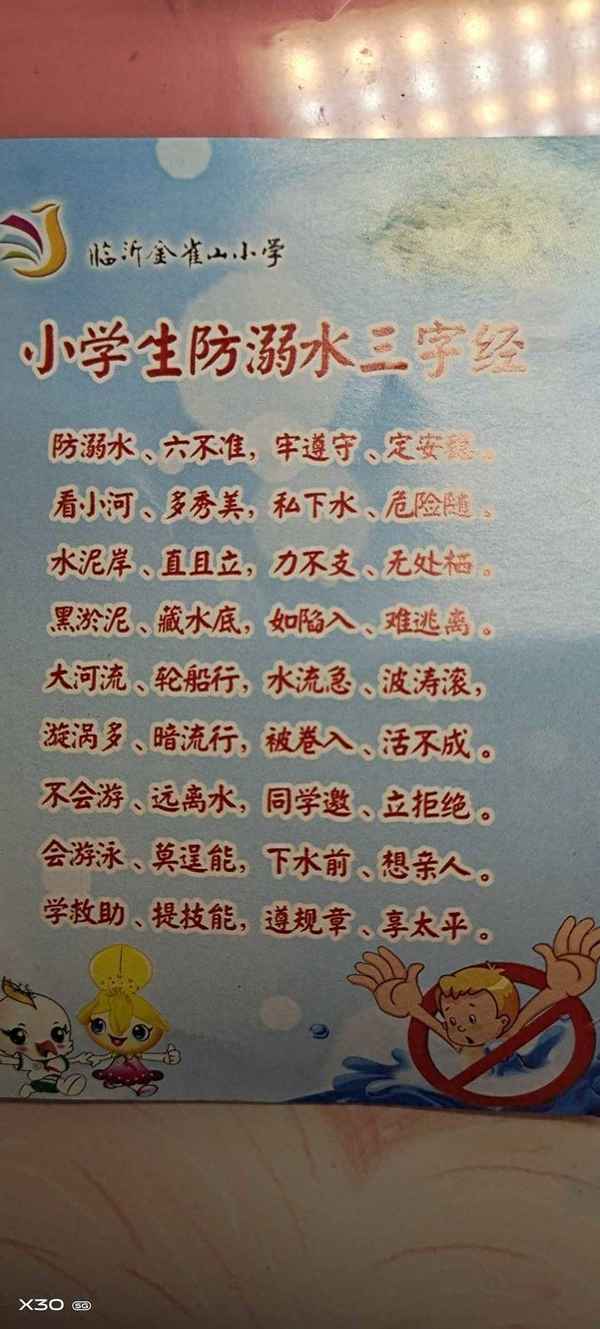 临沂金雀山小学
小学生防溺水三字经
防溺水、六不准，牢遵守、定安稳。
看小河、多秀美，私下水、危险随。
水泥岸、直且立，力不支、无处栖。
黑淤泥、藏水底，如陷入、难逃离。
大河流、轮船行，水流急、波涛滚，
漩涡多、暗流行，被卷入、活不成。
不会游、远离水，同学邀、立拒绝。
会游泳、莫逞能，下水前、想亲人。
学救助、提技能，遵规章、享太平。
X30 5G